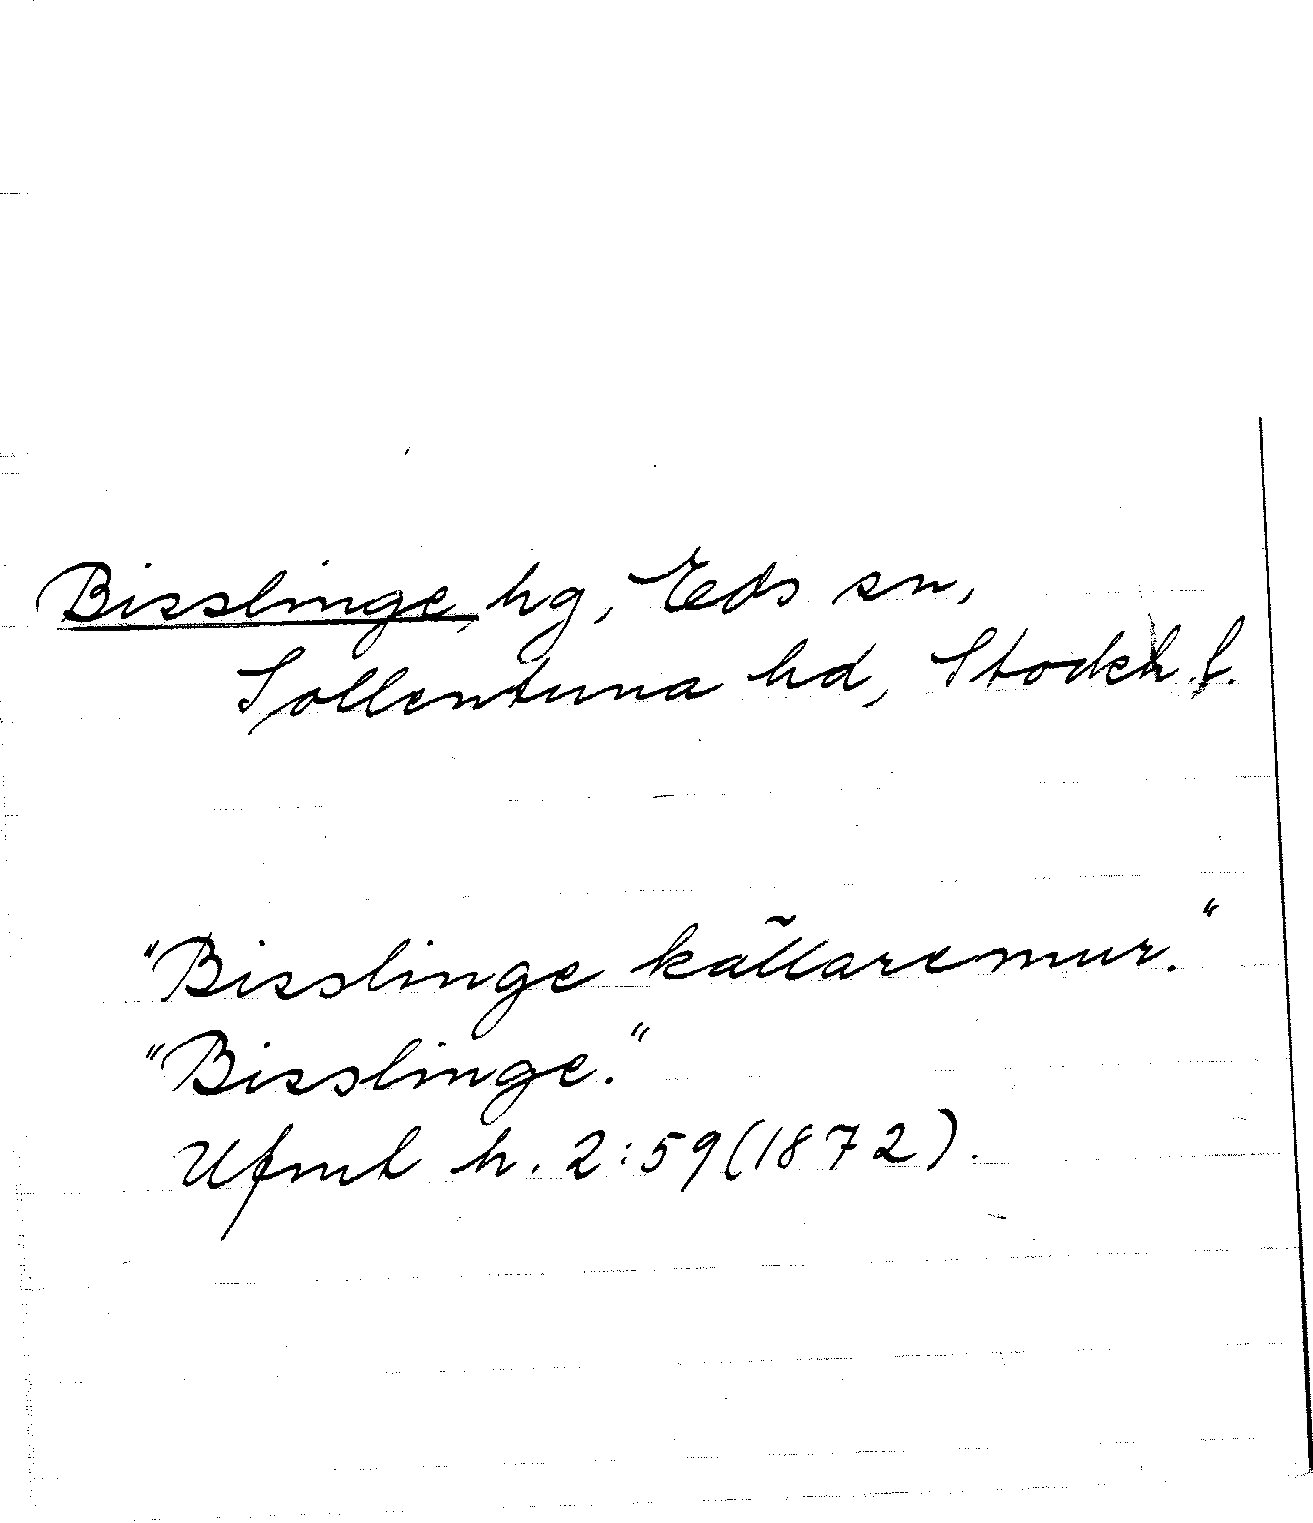 Bisslinge, hg, Eds sn,
Sollentuna hd, Stockh. l.
"Bisslinge källaremur."
"Bisslinge."
Ufmt h. 2:59 (1872).